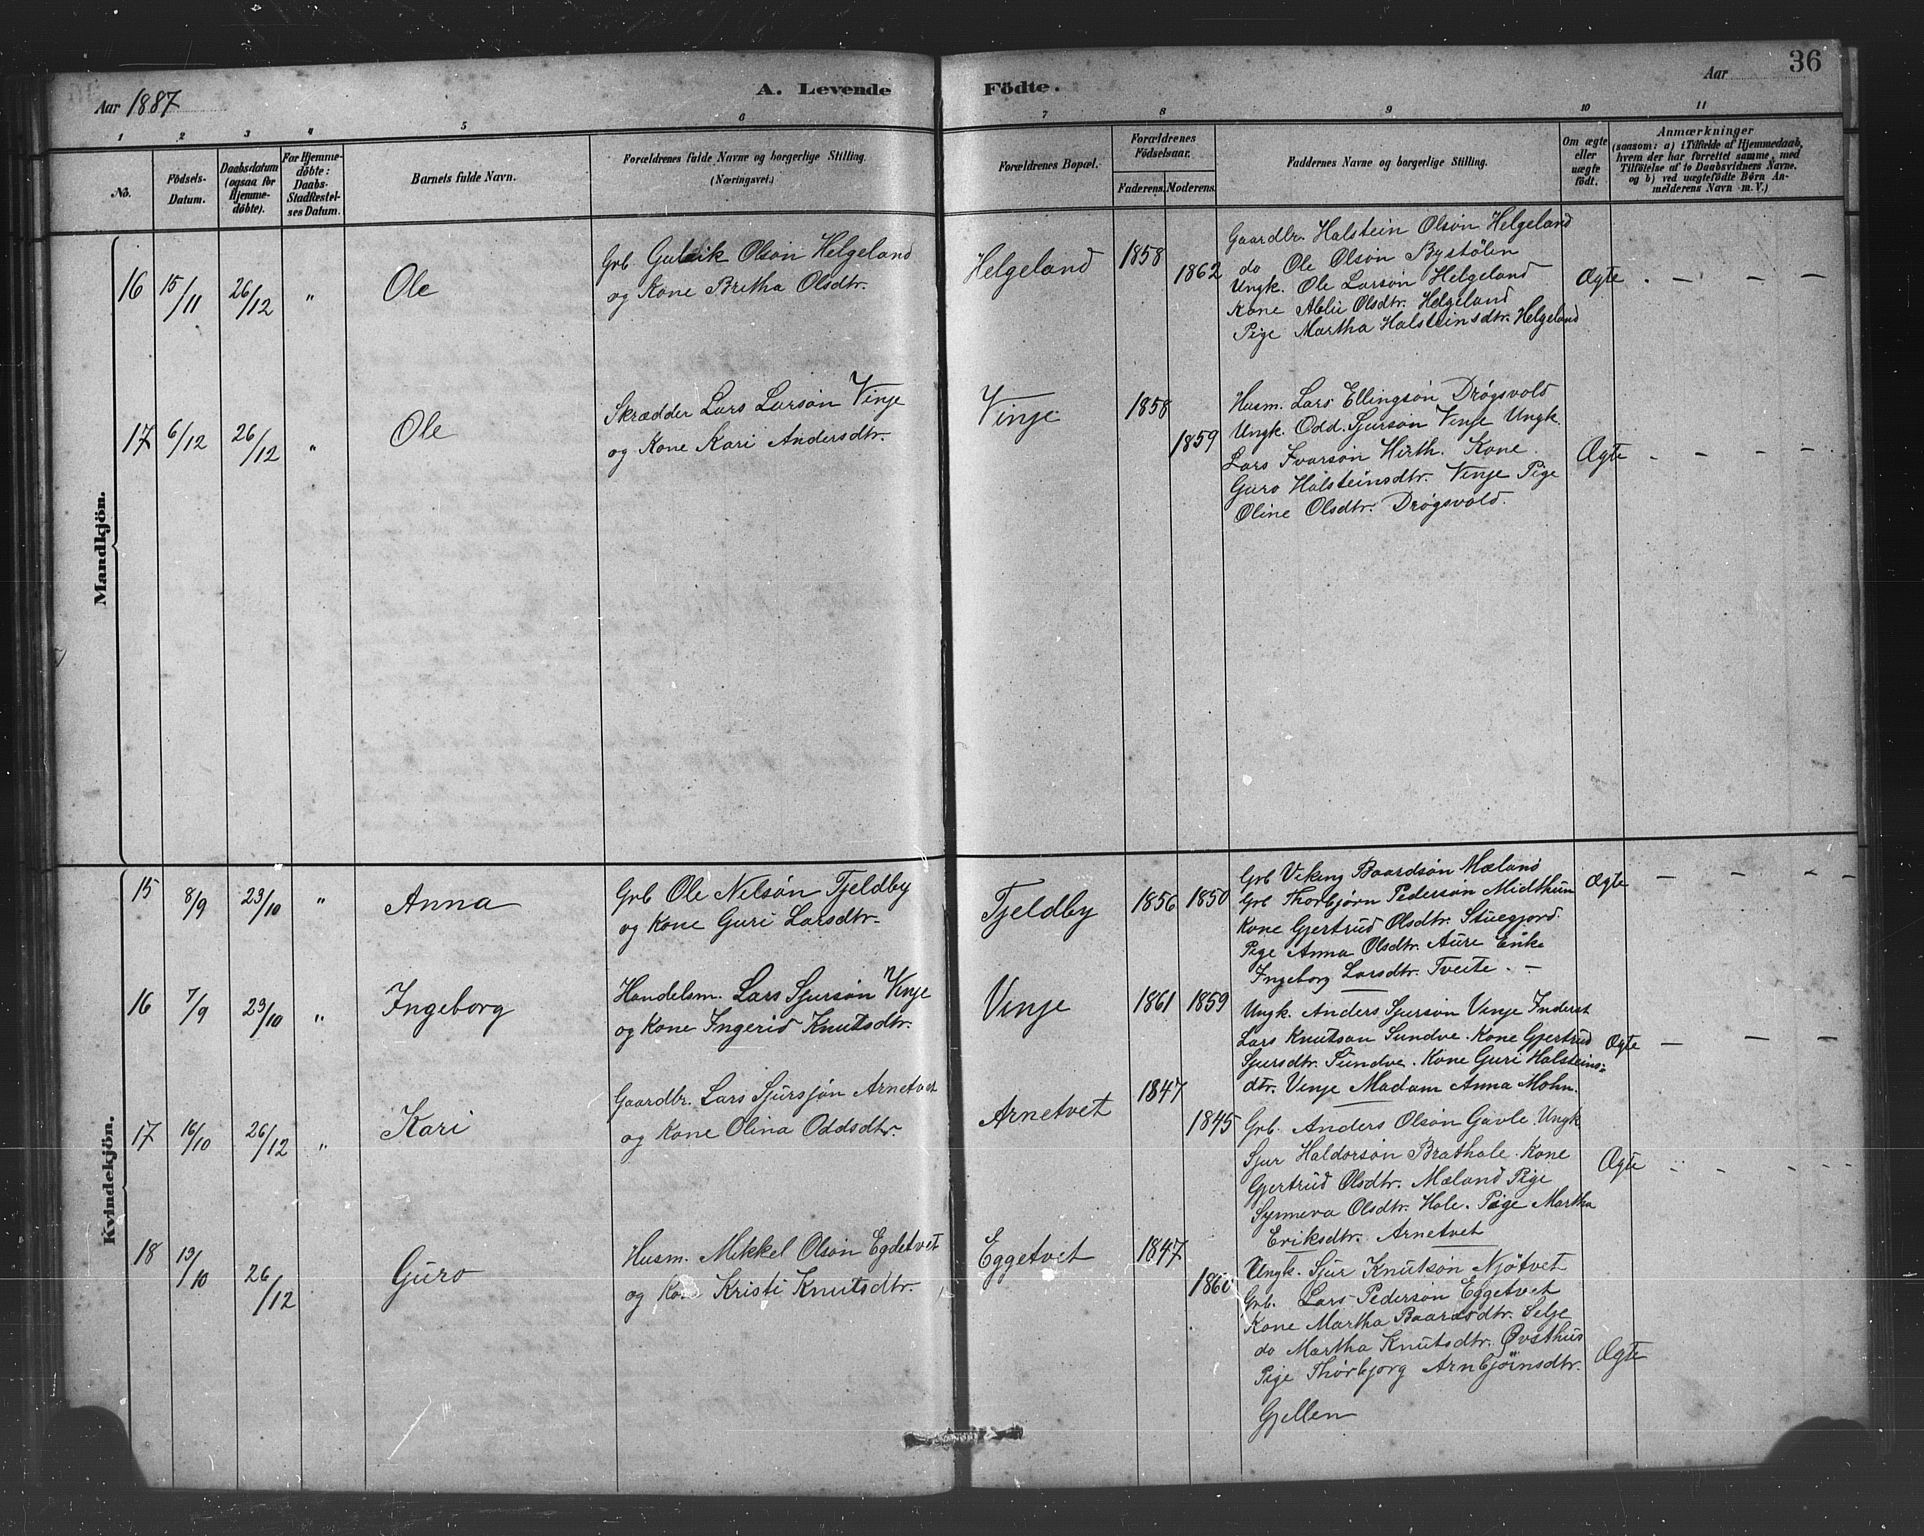 Aar 1887
A. Levende Födte.
Aar
36
1 2 3 4 5 6 7 8 9 10 11
No.
Födsels-
Datum.
Daabsdatum
(ogsaa for
Hjemme-
døbte).
For Hjemme-
døbte:
Daabs-
Stadfæstel-
ses Datum.
Barnets fulde Navn.
Forældrenes fulde Navne og borgerlige Stilling.
(Næringsvei.)
Forældrenes Bopæl.
Forældrenes
Födselsaar.
Faderens. Moderens.
Faddernes Navne og borgerlige Stilling.
Om ægte
eller
uægte
født.
Anmærkninger
(saasom: a) i Tilfælde af Hjemmedaab,
hvem der har forrettet samme, med
Tilføielse af to Daabsvidners Navne.
og b) ved uægtefødte Börn An-
melderens Navn m.V.)
Mandkjön.
16 15/11 26/12 " Ole
Grb. Gulleik Olson Helgeland
og Kone Brytha Olsdtr.
Helgeland 1858 1862
Gaardbr. Halstein Olson Helgeland
do Ole Olson Bystölen
Ungk. Ole Larson Helgeland
Kone Olsdtr. Helgeland
Pige Martha Halsteinsdtr. Helgeland
Ægte . – – –
17 6/12 26/12 " Ole
Skrædder Lars Larson Vinje
og Kone Kari Andersdtr.
Vinje 1858 1859
Husm. Lars Ellingson Drøgsvold
Ungk. Odd. Sjurson Vinje Ungk.
Lars Ivarson Hirth. Kone
Guro Halsteinsdtr. Vinje Pige
Oline Olsdtr. Drøgsvold.
Ægte - - - -
Kvindekjön.
15 8/9 23/10 " Anna
Grb Ole Nelson Tjeldby
og Kone Guri Larsdtr.
Tjeldby 1856 1850
Grb Viking Baardson Mæland
Grb Thorbjørn Pederson Midthun
Kone Gjertrud Olsdtr. Stuegjord.
Pige Anna Olsdtr. Aure Enke
Ingeborg Larsdtr. Tveite. –
Ægte – – – –
16 7/9 23/10 " Ingeborg
Handelsm. Lars Sjurson Vinje
og Kone Ingerid Knutsdtr.
Vinje 1861 1859
Ungk. Anders Sjurson Vinje Inderst
Lars Knutson Sundve. Kone Gjertrud
Sjursdtr. Sundve. Kone Guri Halsteins=
dtr. Vinje Madam Anna Mohn.
Ægte – – – –
17 16/10 26/12 " Kari
Gaardbr. Lars Sjursjøn Arnetvet
og Kone Olina Oddsdtr.
Arnetvet 1847 1845
Grb. Anders Olson Gavle. Ungk
Sjur Haldorson Brathole. Kone
Gjertrud Olsdtr. Mæland Pige
Synneva Olsdtr. Hole. Pige Martha
Eriksdtr. Arnetvet
Ægte - - - -
18 13/10 26/12 Guro
Husm. Mikkel Olson Egdetvet
og Kone Kristi Knutsdtr.
Eggetvet 1847 1860
Ungk. Sjur Knutson Njötvet
Grb. Lars Pederson Eggetvet
Kone Martha Baardsdtr. Selje
do Martha Knutsdtr. Øvsthus
Pige Thørbjorg Arnbjörnsdtr.
Gjellen
Ægte